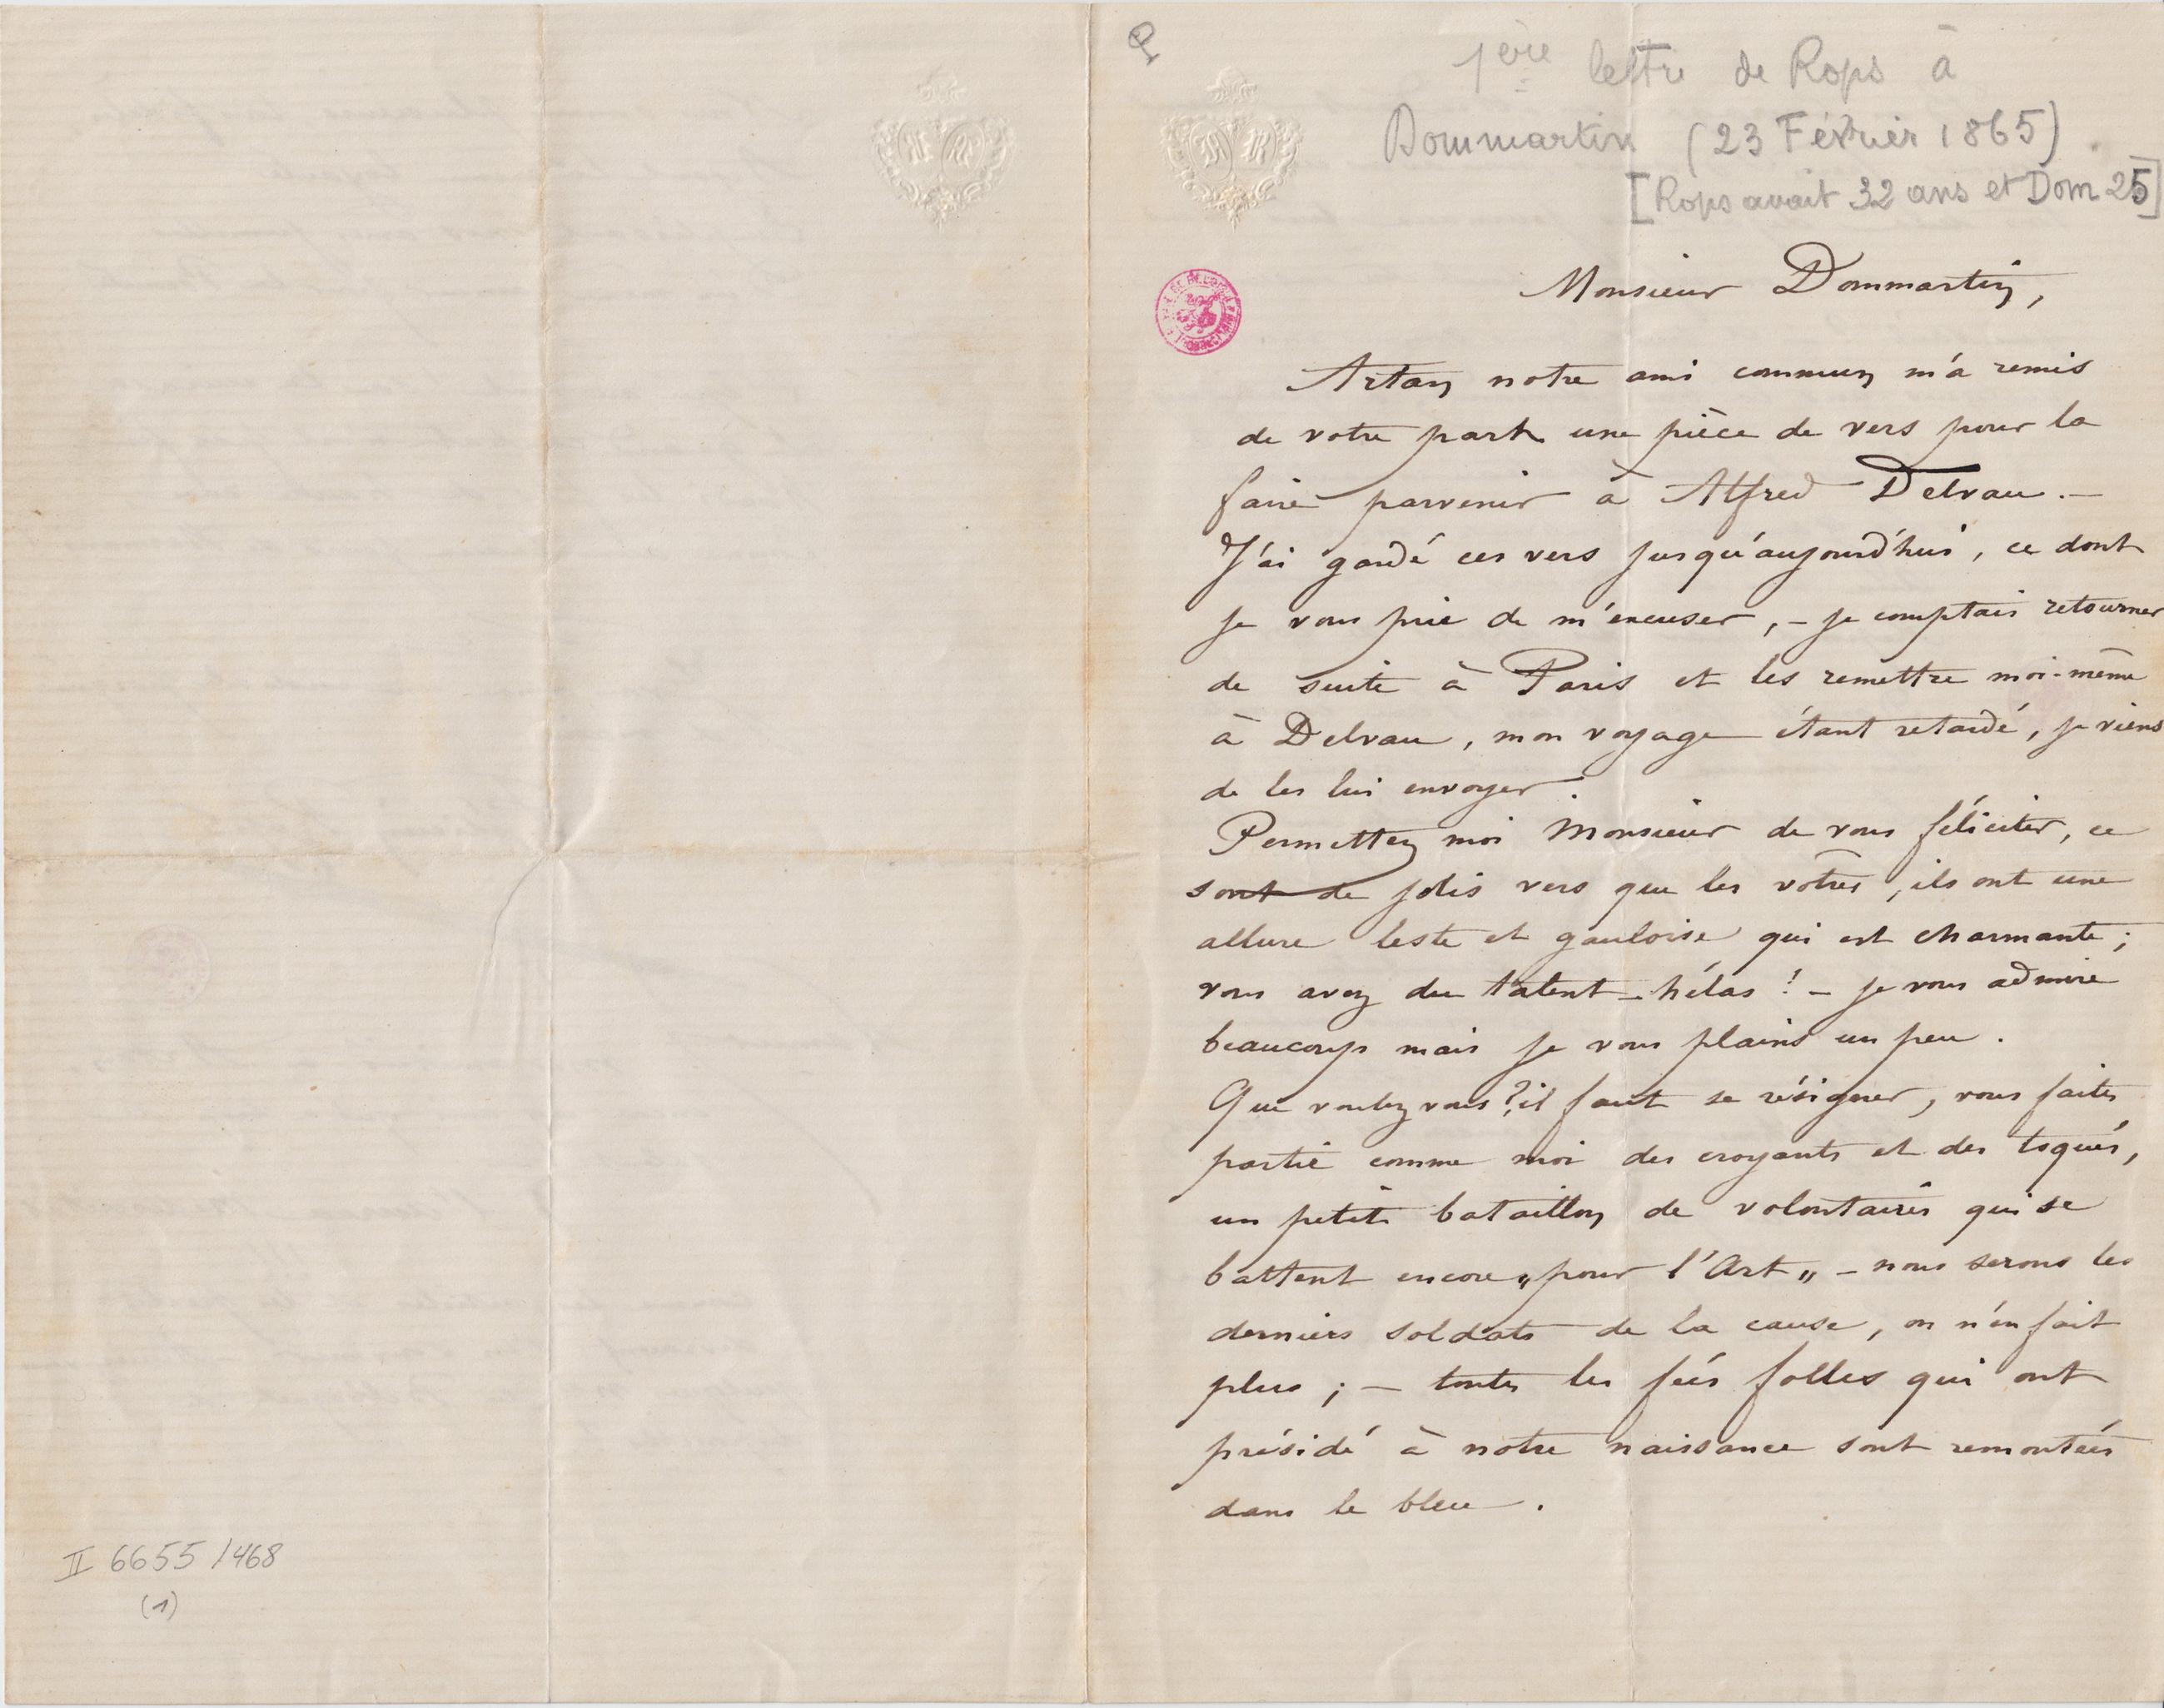 II 6655 / 468
(1)
1ère lettre de Rops à
Dommartin (23 Février 1865).
[Rops avait 32 ans et Dom 25]
Monsieur Dommartin,
Artan notre ami commun m'a remis
de votre part une pièce de vers pour la
faire parvenir à Alfred Delvau. —
J'ai gardé ces vers jusqu'aujourd'hui, ce dont
je vous prie de m'excuser, – je comptais retourner
de suite à Paris et les remettre moi-même
à Delvau, mon voyage étant retardé, je viens
de les lui envoyer.
Permettez moi Monsieur de vous féliciter, ce
sont de jolis vers que les vôtres, ils ont une
allure leste et gauloise qui est charmante ;
vous avez du talent – hélas ! – je vous admire
beaucoup mais je vous plains un peu.
Que voulez vous ? il faut se résigner, vous faites
partie comme moi des croyants et des toqués,
un petit bataillon de volontaires qui se
battent encore „pour l'Art„ – nous serons les
derniers soldats de la cause, on n'en fait
plus ; — toutes les fées folles qui ont
présidé à notre naissance sont remontées
dans le bleu.